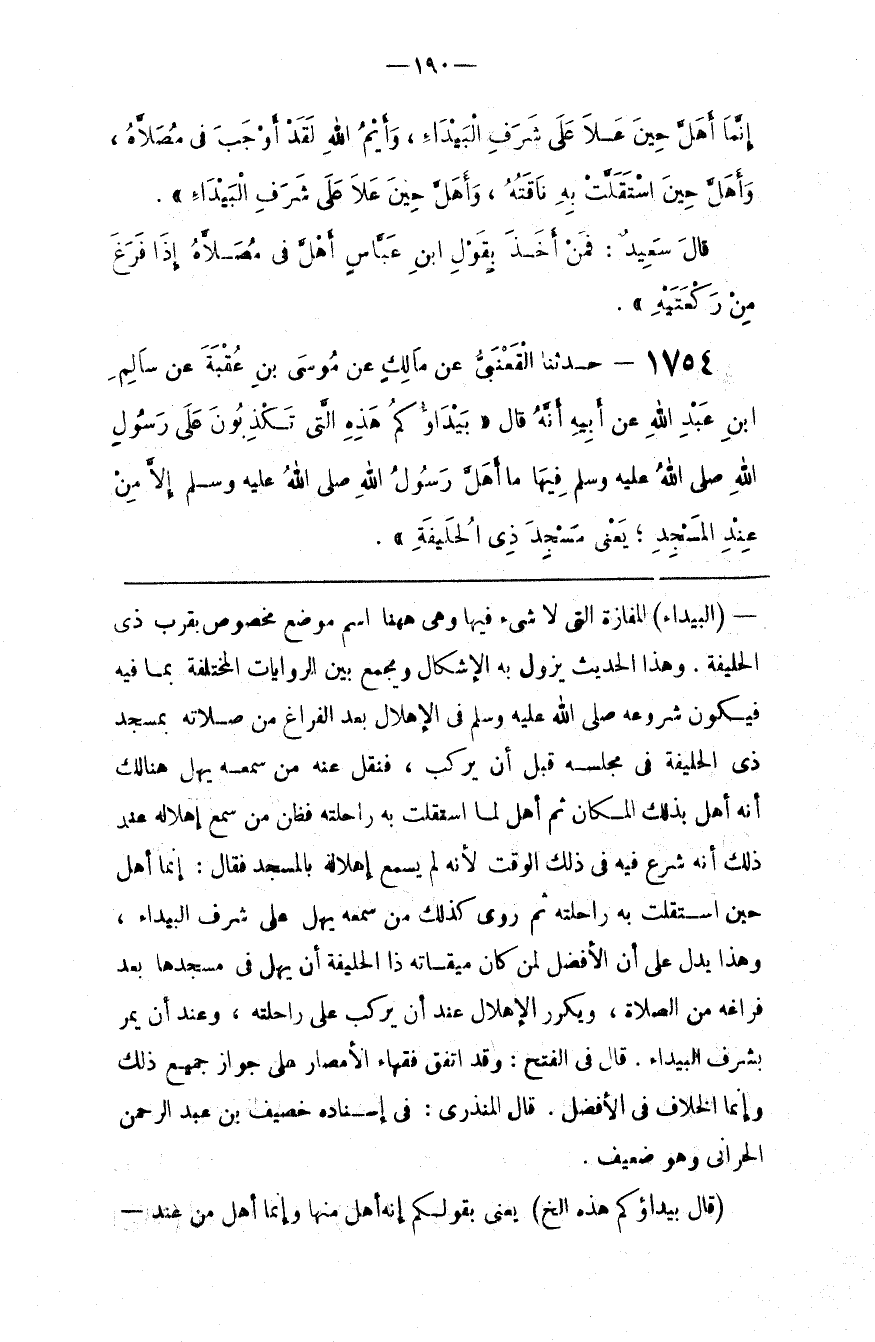 —١٩٠—
إِنَّمَا أَهَلَّ حِينَ عَلاَ عَلَى شَرَفِ الْبَيْدَاءِ ، وَأَيْمُ اللهِ لَقَدْ أَوْجَبَ فى مُصَلاَّهُ ،
وَأَهَلَّ حِينَ اسْتَقَلَّتْ بِهِ نَاقَتُهُ ، وَأَهَلَّ حِينَ عَلاَ عَلَى شَرَفِ الْبَيْدَاءِ » .
قالَ سَعِيدٌ : فَمَنْ أَخَذَ بِقَوْلِ ابنِ عَبَّاسٍ أَهَلَّ فى مُصَلاَّهُ إِذَا فَرَغَ
مِنْ رَكْعَتَيْهِ » .
١٧٥٤ — حدثنا الْقَعْنَبِيُّ عن مَالِكٍ عن مُوسَى بنِ عُقْبَةَ عن سَالِمِ
ابنِ عَبْدِ اللهِ عن أَبِيهِ أَنَّهُ قال « بَيْدَاؤُكُمْ هَذِهِ الَّتى تَكْذِبُونَ عَلَى رَسُولِ
اللهِ صلى اللهُ عليه وسلم فِيهَا ما أَهَلَّ رَسُولُ اللهِ صلى اللهُ عليه وسلم إِلاَّ مِنْ
عِنْدِ المَسْجِدِ ؛ يَعْنى مَسْجِدَ ذِى الْحُلَيفَةِ » .
— (البيداء) المفازة التى لا شىء فيها وهى ههنا اسم موضع مخصوص بقرب ذى
الحليفة . وهذا الحديث يزول به الإشكال ويجمع بين الروايات المختلفة بما فيه
فيكون شروعه صلى الله عليه وسلم فى الإهلال بعد الفراغ من صلاته بمسجد
ذى الحليفة فى مجلسه قبل أن يركب ، فنقل عنه من سمعه يهل هنالك
أنه أهل بذلك المكان ثم أهل لما استقلت به راحلته فظن من سمع إهلاله عند
ذلك أنه شرع فيه فى ذلك الوقت لأنه لم يسمع إهلاله بالمسجد فقال : إنما أهل
حين استقلت به راحلته ثم روى كذلك من سمعه يهل على شرف البيداء ،
وهذا يدل على أن الأفضل لمن كان ميقاته ذا الحليفة أن يهل فى مسجدها بعد
فراغه من الصلاة ، ويكرر الإهلال عند أن يركب على راحلته ، وعند أن يمر
بشرف البيداء . قال فى الفتح : وقد اتفق فقهاء الأمصار على جواز جميع ذلك
وإنما الخلاف فى الأفضل . قال المنذرى : فى إسناده خصيف بن عبد الرحمن
الحرانى وهو ضعيف .
(قال بيداؤكم هذه الخ) يعنى بقولكم إنه أهل منها وإنما أهل من عند —